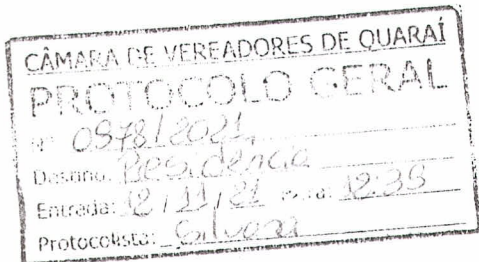 CÂMARA DE VEREADORES DE QUARAÍ
PROTOCOLO GERAL
Nº 0978/2021
Destino: Presidência
Entrada: 12/11/21 Hora: 12:35
Protocolista: Silvana